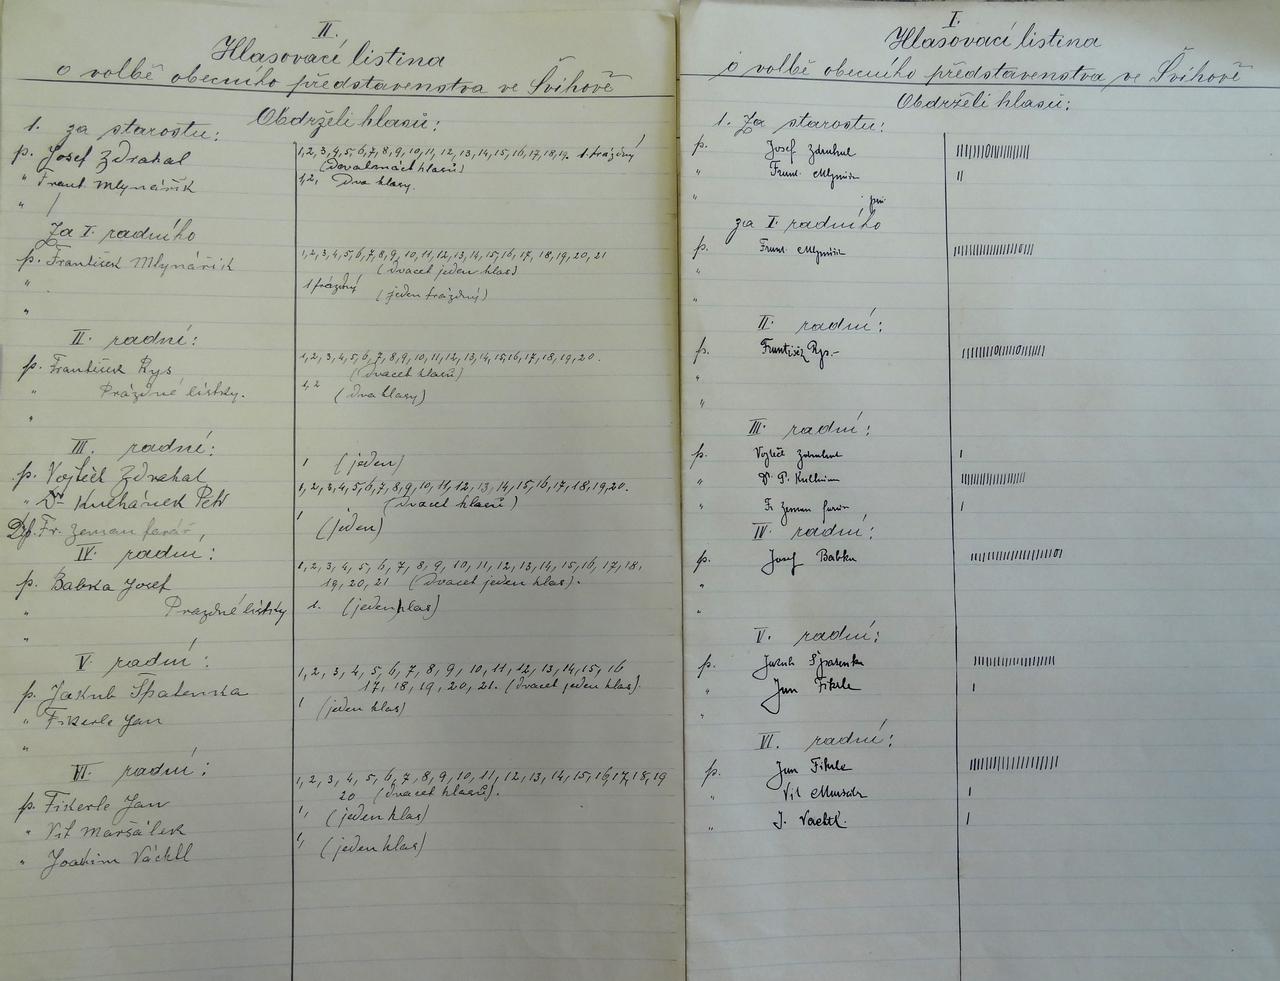 II.
Hlasovací listina
o volbě obecního představenstva ve Švihově
Obdrželi hlasů:
1. za starostu:
p. Josef Zdrahal 1, 2, 3, 4, 5, 6, 7, 8, 9, 10, 11, 12, 13, 14, 15, 16, 17, 18, 19. 1 prázdný
hlasů)
" Frant. Mlynářík 1, 2, Dva hlasy.
"
Za I. radního
p. František Mlynářík 1, 2, 3, 4, 5, 6, 7, 8, 9, 10, 11, 12, 13, 14, 15, 16, 17, 18, 19, 20, 21
(dvacet jeden hlas)
" 1 prázdný (jeden prázdný)
"
II. radní:
p. František Rys 1, 2, 3, 4, 5, 6, 7, 8, 9, 10, 11, 12, 13, 14, 15, 16, 17, 18, 19, 20.
(dvacet hlasů)
" Prázdné lístky. 1, 2 (dva hlasy)
"
III. radní:
p. Vojtěch Zdrahal 1 (jeden)
" Dr. Kuchánek Petr 1, 2, 3, 4, 5, 6, 7, 8, 9, 10, 11, 12, 13, 14, 15, 16, 17, 18, 19, 20.
(dvacet hlasů)
Fr. Zeman farář, 1 (jeden)
IV. radní:
p. Babka Josef 1, 2, 3, 4, 5, 6, 7, 8, 9, 10, 11, 12, 13, 14, 15, 16, 17, 18,
19, 20, 21 (Dvacet jeden hlas).
" Prazdné lístky 1. (jeden hlas)
"
V. radní:
p. Jakub Špatenka 1, 2, 3, 4, 5, 6, 7, 8, 9, 10, 11, 12, 13, 14, 15, 16
17, 18, 19, 20, 21. (dvacet jeden hlas).
" Fikerle Jan 1 (jeden hlas)
"
VI. radní:
p. Fikerle Jan 1, 2, 3, 4, 5, 6, 7, 8, 9, 10, 11, 12, 13, 14, 15, 16, 17, 18, 19
20 (dvacet hlasů).
" Vit Maršálek 1, (jeden hlas)
" Joachim Váchtl 1, (jeden hlas)
I.
Hlasovací listina
o volbě obecního představenstva ve Švihově
Obdrželi hlasů:
1. Za starostu:
p. Josef Zdrahal
" Frant. Mlynářík
"
za I. radního
p. Frant. Mlynářík
"
"
II. radní:
p. František Rys.-
"
"
III. radní:
p. Vojtěch Zdrahal
" Dr. P. Kuchánek
Fr. Zeman farář
IV. radní:
p. Josef Babka
"
"
V. radní:
p. Jakub Špatenka
" Jan Fikrle
"
VI. radní:
p. Jan Fikrle
" Vit
" J. Vachtl.